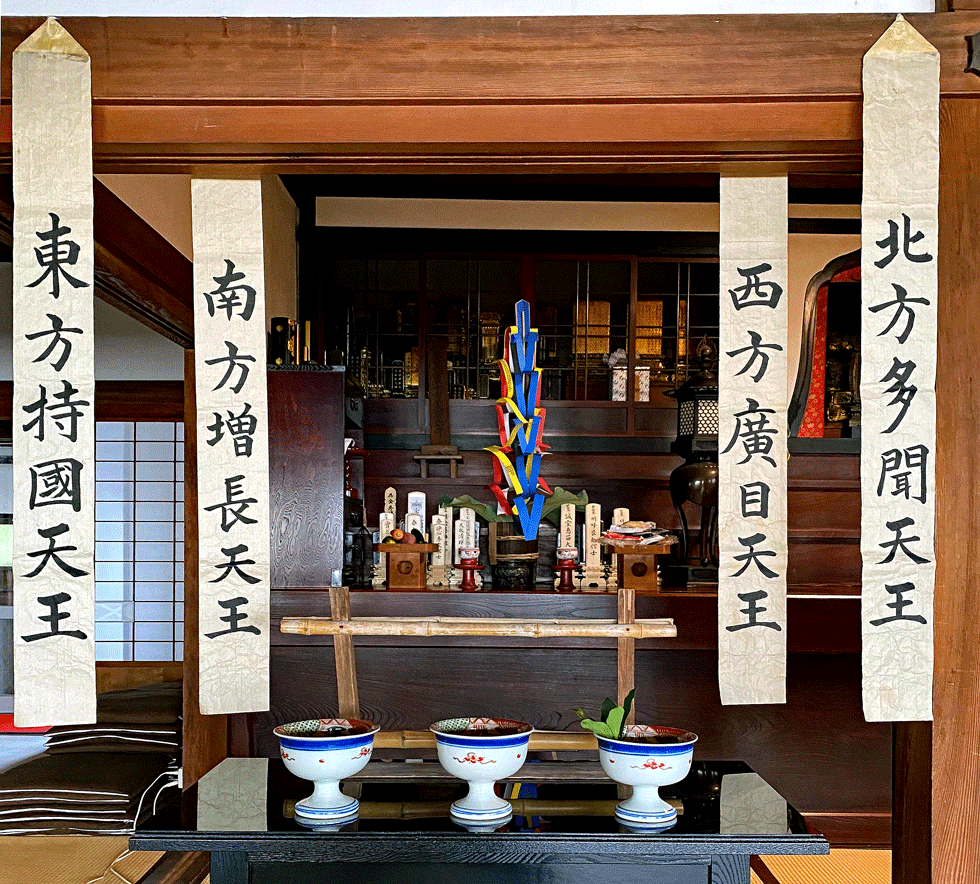 東方持國天王
南方增長天王
西方廣目天王
北方多聞天王